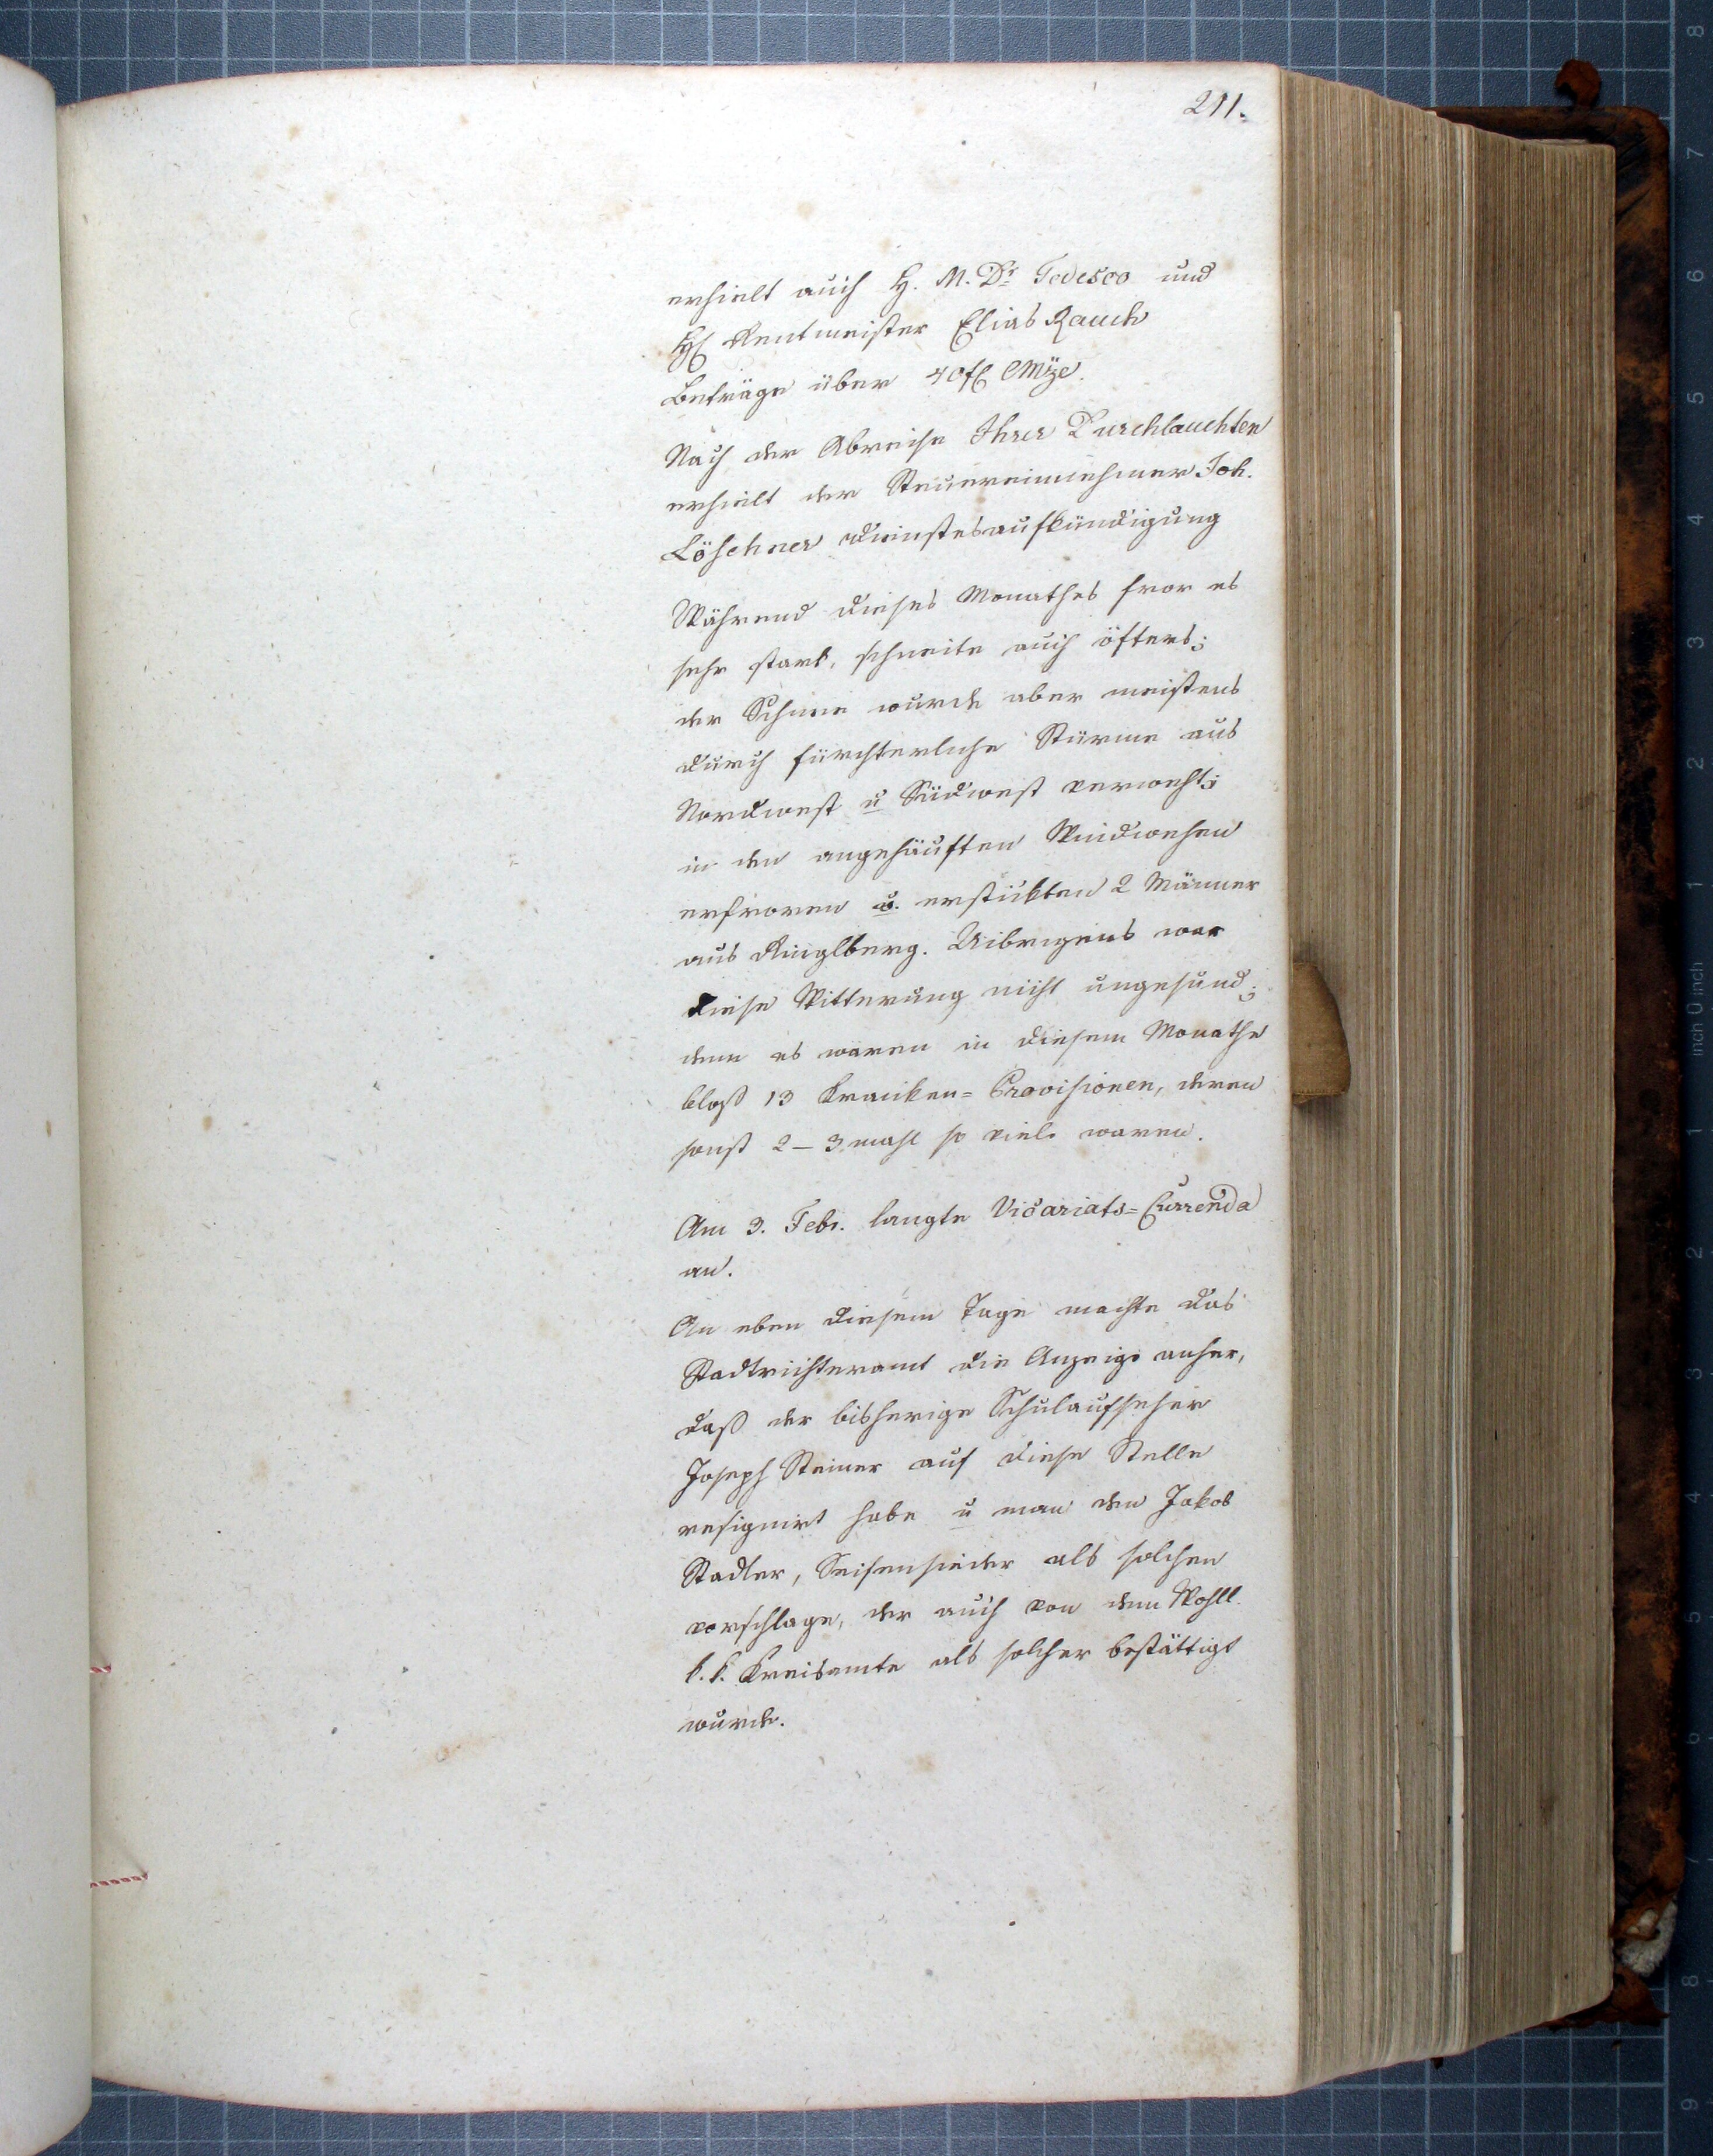 211.
erhielt auch H. M. Dr. Tedesco und
H Rentmeister Elias Rauch
Beträge über 40 fl CMze.
Nach der Abreise Ihrer Durchlauchten
erhielt der Steuereinnehmer Joh.
Löschner Dienstesaufkündigung
Während dieses Monathes fror es
sehr stark, schneite auch öfters;
der Schnee wurde aber meistens
durch fürchterliche Stürme aus
Nordwest u Südwest verweht;
in den angehäuften Windwehen
erfroren u. erstickten 2 Männer
aus Ringlberg. Uibrigens war
diese Witterung nicht ungesund;
denn es waren in diesem Monathe
bloß 13 Kranken=Provisionen, deren
sonst 2-3 mahl so viele waren.
Am 3. Febr. langte Vicariats=Currenda
an.
An eben diesem Tage machte das
Stadtrichteramt die Anzeige anher,
daß der bisherige Schulaufseher
Joseph Steiner auf diese Stelle
resignirt habe u man den Jakob
Stadler, Seifensieder als solchen
vorschlage, der auch von dem Wohll.
k. k. Kreisamte als solcher bestättigt
wurde.
inch 0 inch
8
7
6
5
4
3
2
1
1
2
3
4
5
6
7
8
9